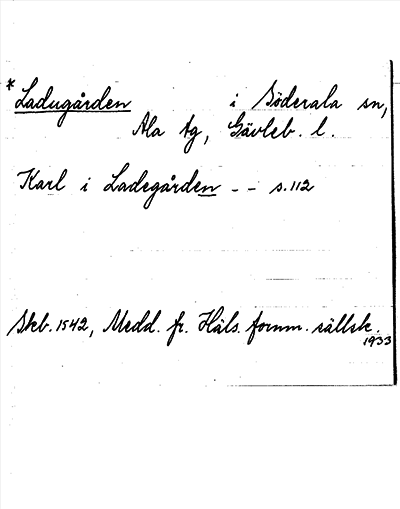 *Ladugården i Söderala sn,
Ala tg, Gävleb. l.
Karl i Ladegården - - s. 112
Skb. 1542, Medd. fr. Häls. fornm. sällsk.
1933